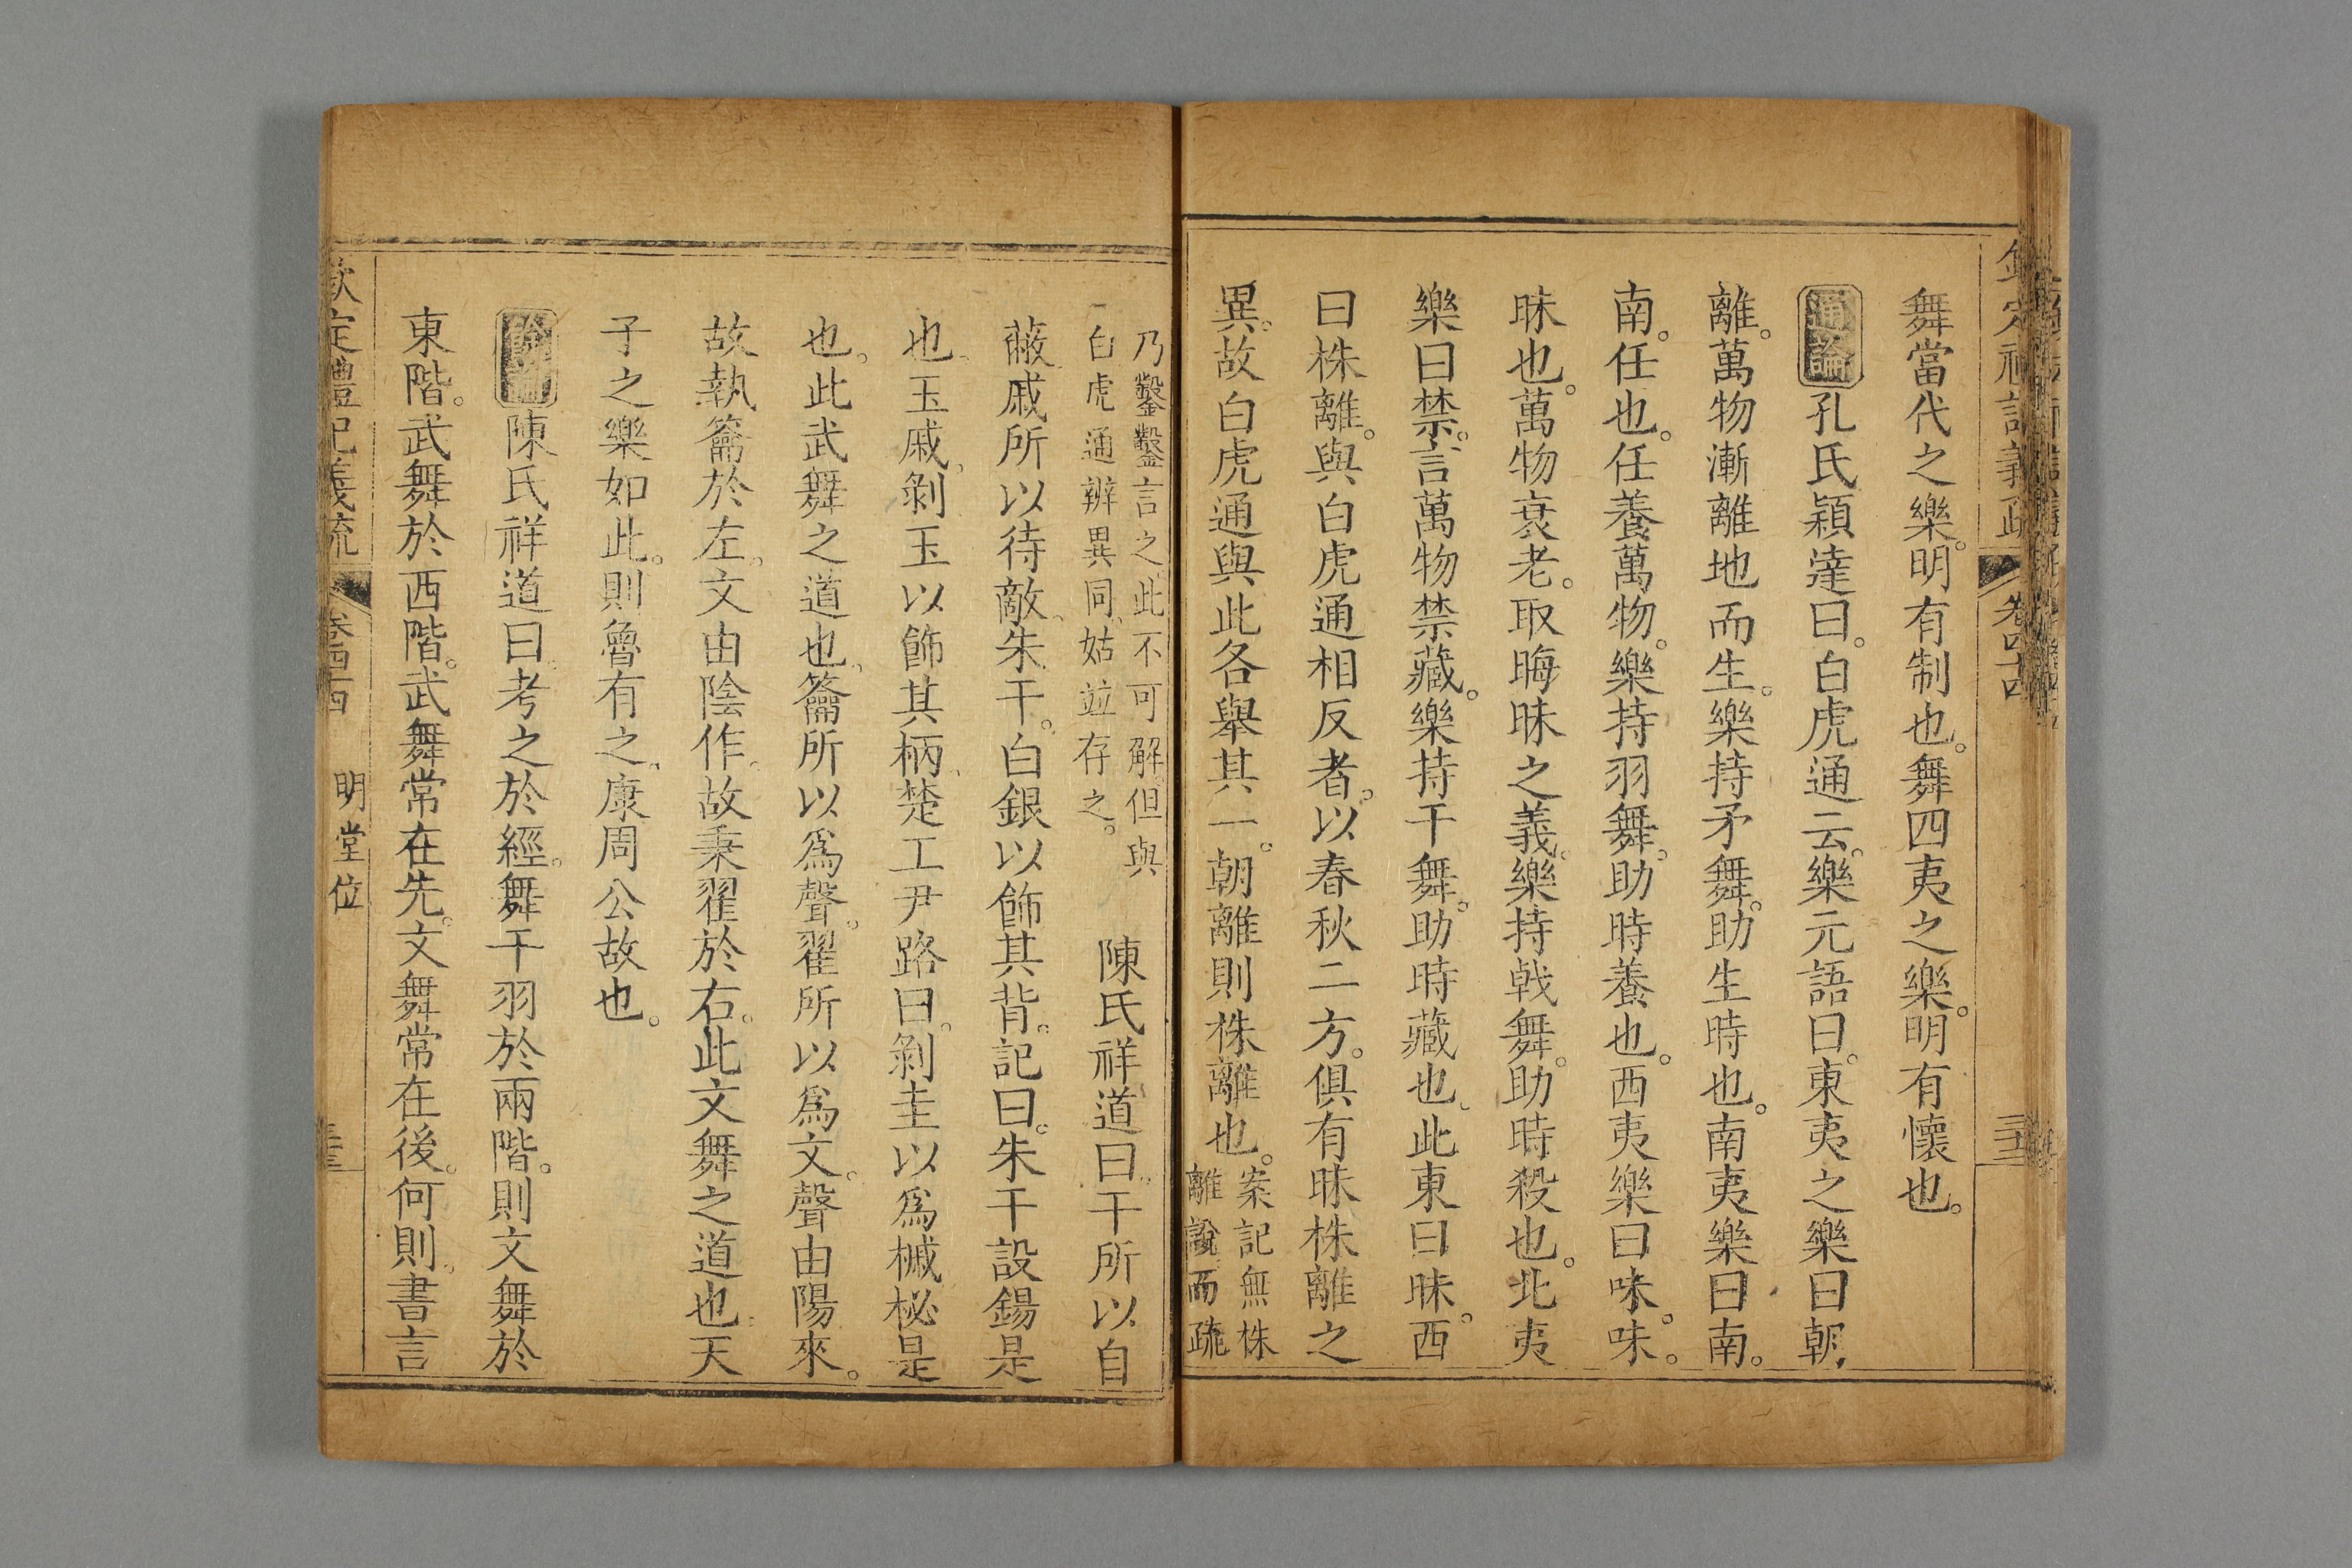 舞當代之樂。明有制也。舞四夷之樂。明有懷也。
通論孔氏穎達曰。白虎通云。樂元語曰。東夷之樂曰朝
離。萬物漸離地而生。樂持矛舞。助生時也。南夷樂曰南。
南。任也。任養萬物。樂持羽舞。助時養也。西夷樂曰味。味。
昧也。萬物衰老。取晦昧之義。樂持戟舞。助時殺也。北夷
樂曰禁。言萬物禁藏。樂持干舞。助時藏也。此東曰昧。西
曰株離。與白虎通相反者。以春秋二方。俱有昧株離之
異。故白虎通與此各舉其一。朝離則株離也。案記無株
離說而疏
乃鑿鑿言之。此不可解。但與
白虎通辨異同。姑並存之。
陳氏祥道曰。干所以自
蔽。戚所以待敵。朱干。白銀以飾其背。記曰。朱干設鍚是
也。玉戚。剝玉以飾其柄。楚工尹路曰。剝圭以爲鏚柲是
也。此武舞之道也。籥所以爲聲。翟所以爲文。聲由陽來。
故執籥於左。文由陰作。故秉翟於右。此文舞之道也。天
子之樂如此。則魯有之。康周公故也。
陳氏祥道曰。考之於經。舞干羽於兩階。則文舞於
東階。武舞於西階。武舞常在先。文舞常在後。何則。書言
欽定禮記義疏 卷四四 明堂位